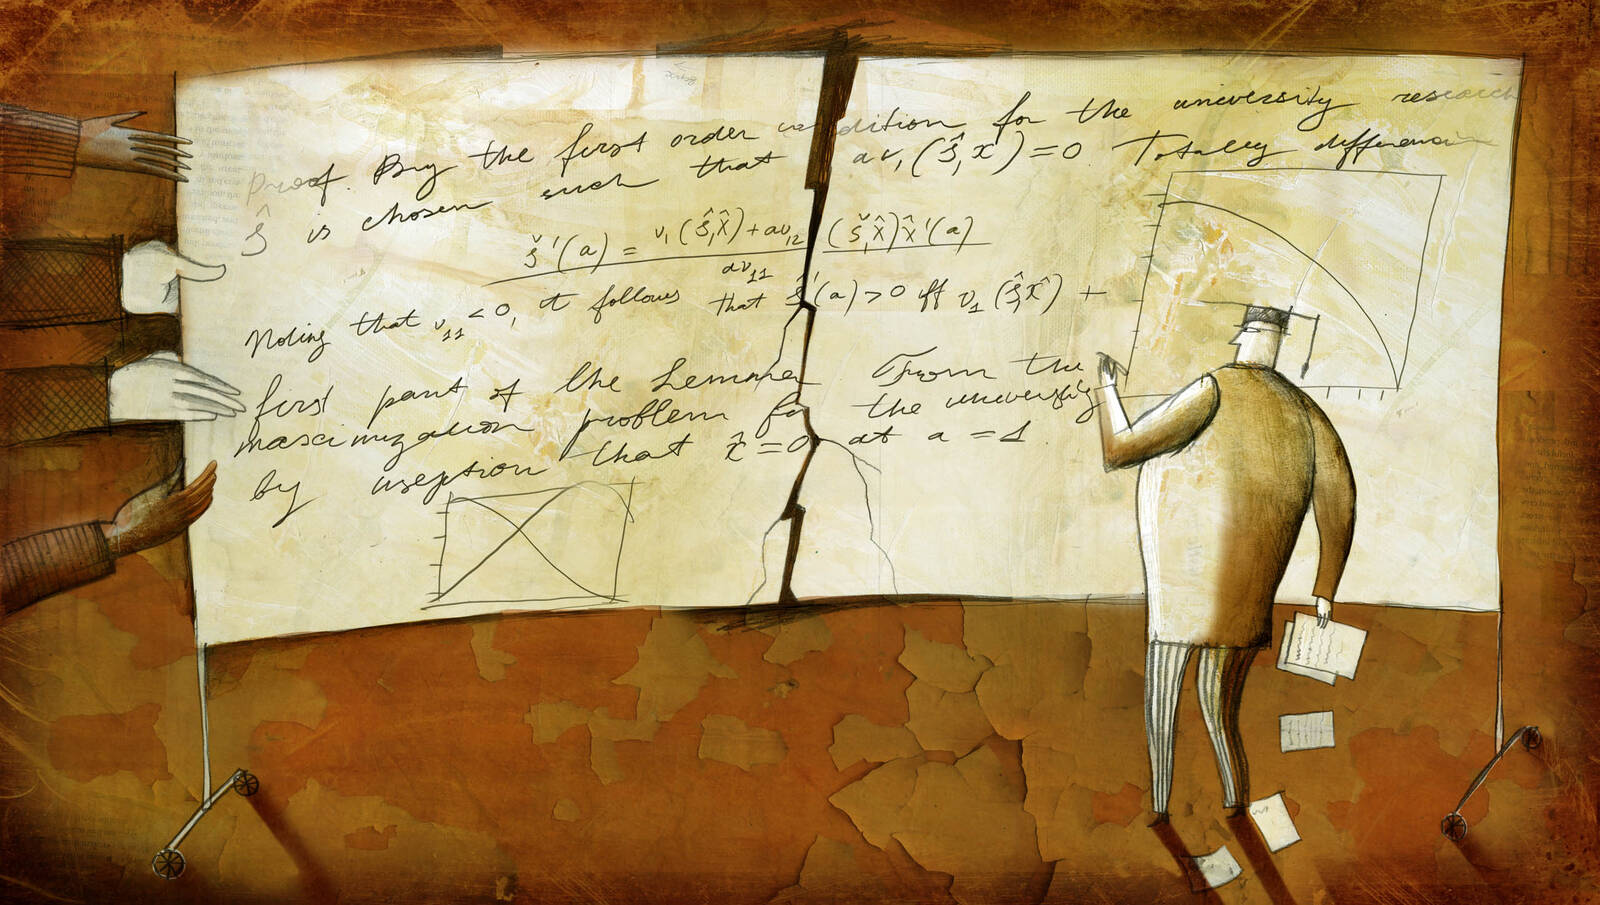 Proof. By the first order condition for the university research
ŝ is chosen such that av₁(ŝ,x̂)=0. Totally differen
š'(a) = v₁(ŝ,x̂)+av₁₂(š,x̂)x̂'(a)
av₁₁
Noting that v₁₁<0, it follows that ŝ'(a)>0 iff v₁(ŝ,x̂) +
first part of the Lemma From the
mascimization problem for the university
by that x̂=0 at a=1.